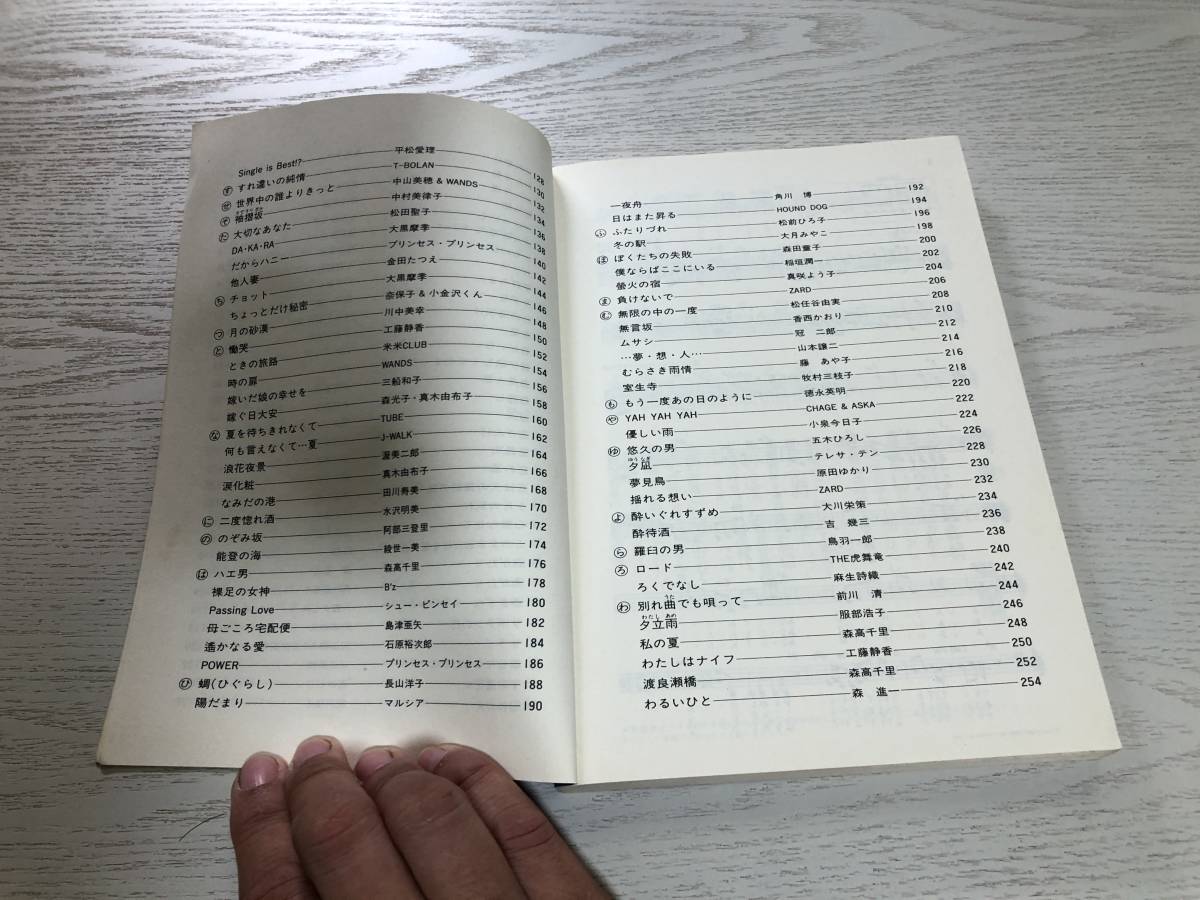 Single is Best!?―平松愛理―128
す すれ違いの純情―T-BOLAN―130
せ 世界中の誰よりきっと―中山美穂 & WANDS―132
そ 袖摺坂―中村美律子―134
た 大切なあなた―松田聖子―136
DA・KA・RA―大黒摩季―138
だからハニー―プリンセス・プリンセス―140
他人妻―金田たつえ―142
ち チョット―大黒摩季―144
ちょっとだけ秘密―奈保子 & 小金沢くん―146
つ 月の砂漠―川中美幸―148
と 慟哭―工藤静香―150
ときの旅路―米米CLUB―152
時の扉―WANDS―154
嫁いだ娘の幸せを―三船和子―156
嫁ぐ日大安―森光子・真木由布子―158
な 夏を待ちきれなくて―TUBE―160
何も言えなくて…夏―J-WALK―162
浪花夜景―渥美二郎―164
涙化粧―真木由布子―166
なみだの港―田川寿美―168
に 二度惚れ酒―水沢明美―170
の のぞみ坂―阿部三登里―172
能登の海―綾世一美―174
は ハエ男―森高千里―176
裸足の女神―B'z―178
Passing Love―シュー・ピンセイ―180
母ごころ宅配便―島津亜矢―182
遙かなる愛―石原裕次郎―184
POWER―プリンセス・プリンセス―186
ひ 蜩(ひぐらし)―長山洋子―188
陽だまり―マルシア―190
一夜舟―角川 博―192
日はまた昇る―HOUND DOG―194
ふ ふたりづれ―松前ひろ子―196
冬の駅―大月みやこ―198
ほ ぼくたちの失敗―森田童子―200
僕ならばここにいる―稲垣潤一―202
螢火の宿―真咲よう子―204
ま 負けないで―ZARD―206
む 無限の中の一度―松任谷由実―208
無言坂―香西かおり―210
ムサシ―冠 二郎―212
…夢・想・人…―山本譲二―214
むらさき雨情―藤 あや子―216
室生寺―牧村三枝子―218
も もう一度あの日のように―徳永英明―220
や YAH YAH YAH―CHAGE & ASKA―222
優しい雨―小泉今日子―224
ゆ 悠久の男―五木ひろし―226
ゆうなぎ
夕凪―テレサ・テン―228
夢見鳥―原田ゆかり―230
揺れる想い―ZARD―232
よ 酔いぐれすずめ―大川栄策―234
酔待酒―吉 幾三―236
ら 羅臼の男―鳥羽一郎―238
ろ ロード―THE虎舞竜―240
ろくでなし―麻生詩織―242
うた
わ 別れ曲でも唄って―前川 清―244
わたし あめ
夕立雨―服部浩子―246
私の夏―森高千里―248
わたしはナイフ―工藤静香―250
渡良瀬橋―森高千里―252
わるいひと―森 進一―254